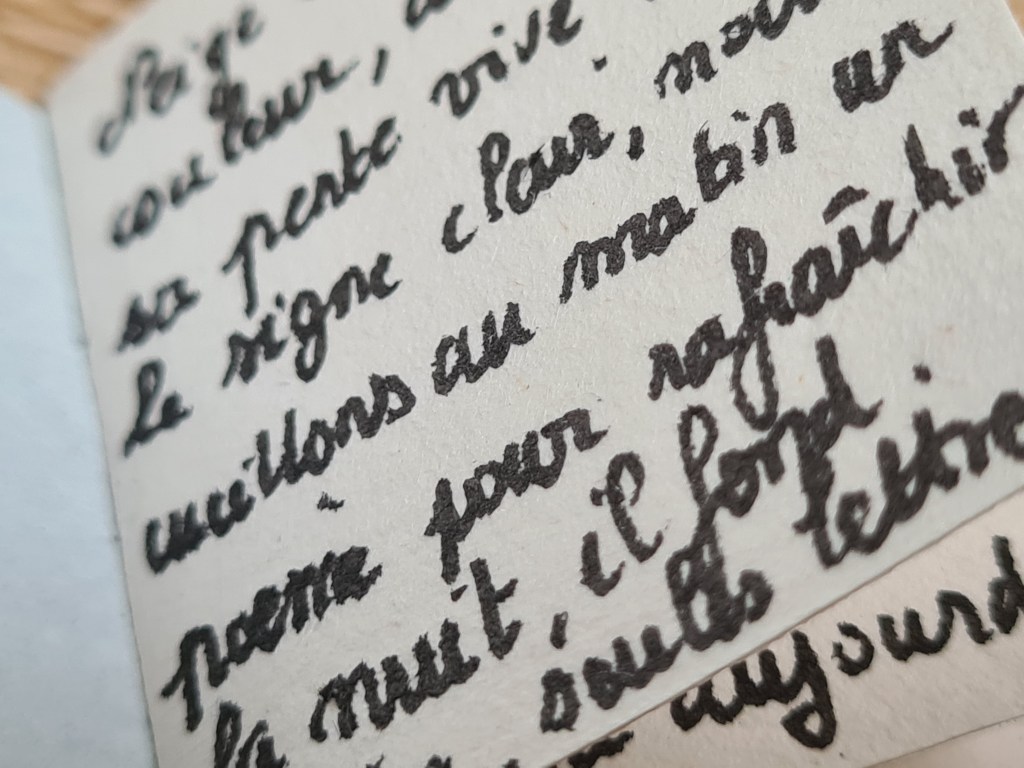 couleur,
sa pente vive
le signe clair, nous
cueillons au matin un
poème pour rafraîchir
la nuit, il fond
seules lettre
aujourd